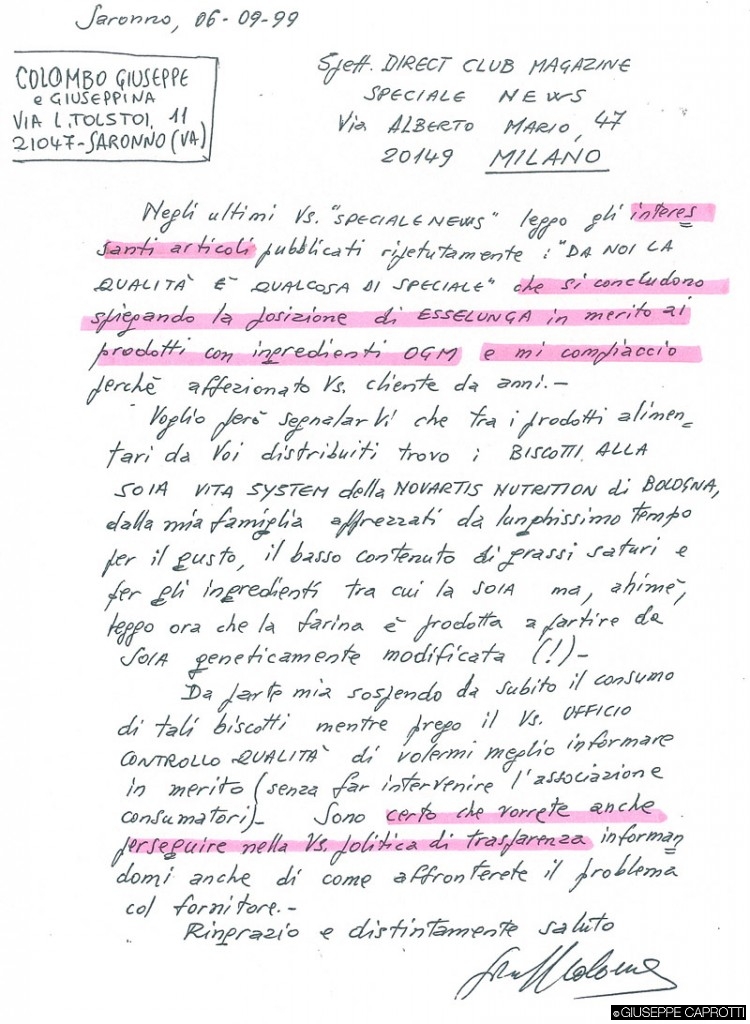 Saronno, 06-09-99
COLOMBO GIUSEPPE
e GIUSEPPINA
VIA L. TOLSTOI, 11
21047-SARONNO (VA)
Spett. DIRECT CLUB MAGAZINE
SPECIALE NEWS
Via ALBERTO MARIO, 47
20149 MILANO
Negli ultimi Vs. "SPECIALE NEWS" leggo gli interes=
santi articoli pubblicati ripetutamente : "DA NOI LA
QUALITA' È QUALCOSA DI SPECIALE" che si concludono
spiegando la posizione di ESSELUNGA in merito ai
prodotti con ingredienti OGM e mi compiaccio
perchè affezionato Vs. cliente da anni.-
Voglio però segnalarVi che tra i prodotti alimen=
tari da Voi distribuiti trovo i BISCOTTI ALLA
SOIA VITA SYSTEM della NOVARTIS NUTRITION di BOLOGNA,
dalla mia famiglia apprezzati da lunghissimo tempo
per il gusto, il basso contenuto di grassi saturi e
per gli ingredienti tra cui la SOIA ma, ahimè,
leggo ora che la farina è prodotta a partire da
SOIA geneticamente modificata (!)-
Da parte mia sospendo da subito il consumo
di tali biscotti mentre prego il Vs. UFFICIO
CONTROLLO QUALITA' di volermi meglio informare
in merito (senza far intervenire l'associazione
consumatori)- Sono certo che vorrete anche
perseguire nella Vs. politica di trasparenza informan=
domi anche di come affronterete il problema
col fornitore.-
Ringrazio e distintamente saluto
©GIUSEPPE CAPROTTI